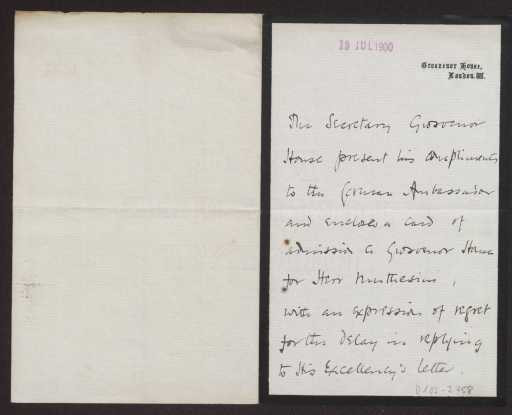 19 JUL 1900
Grosvenor House,
London. W.
The Secretary Grosvenor
House present his compliments
to the German Ambassador
and encloses a card of
admission to Grosvenor House
for Herr Muthesius,
with an expression of regret
for the delay in replying
to His Excellency's letter.
D 102-2458